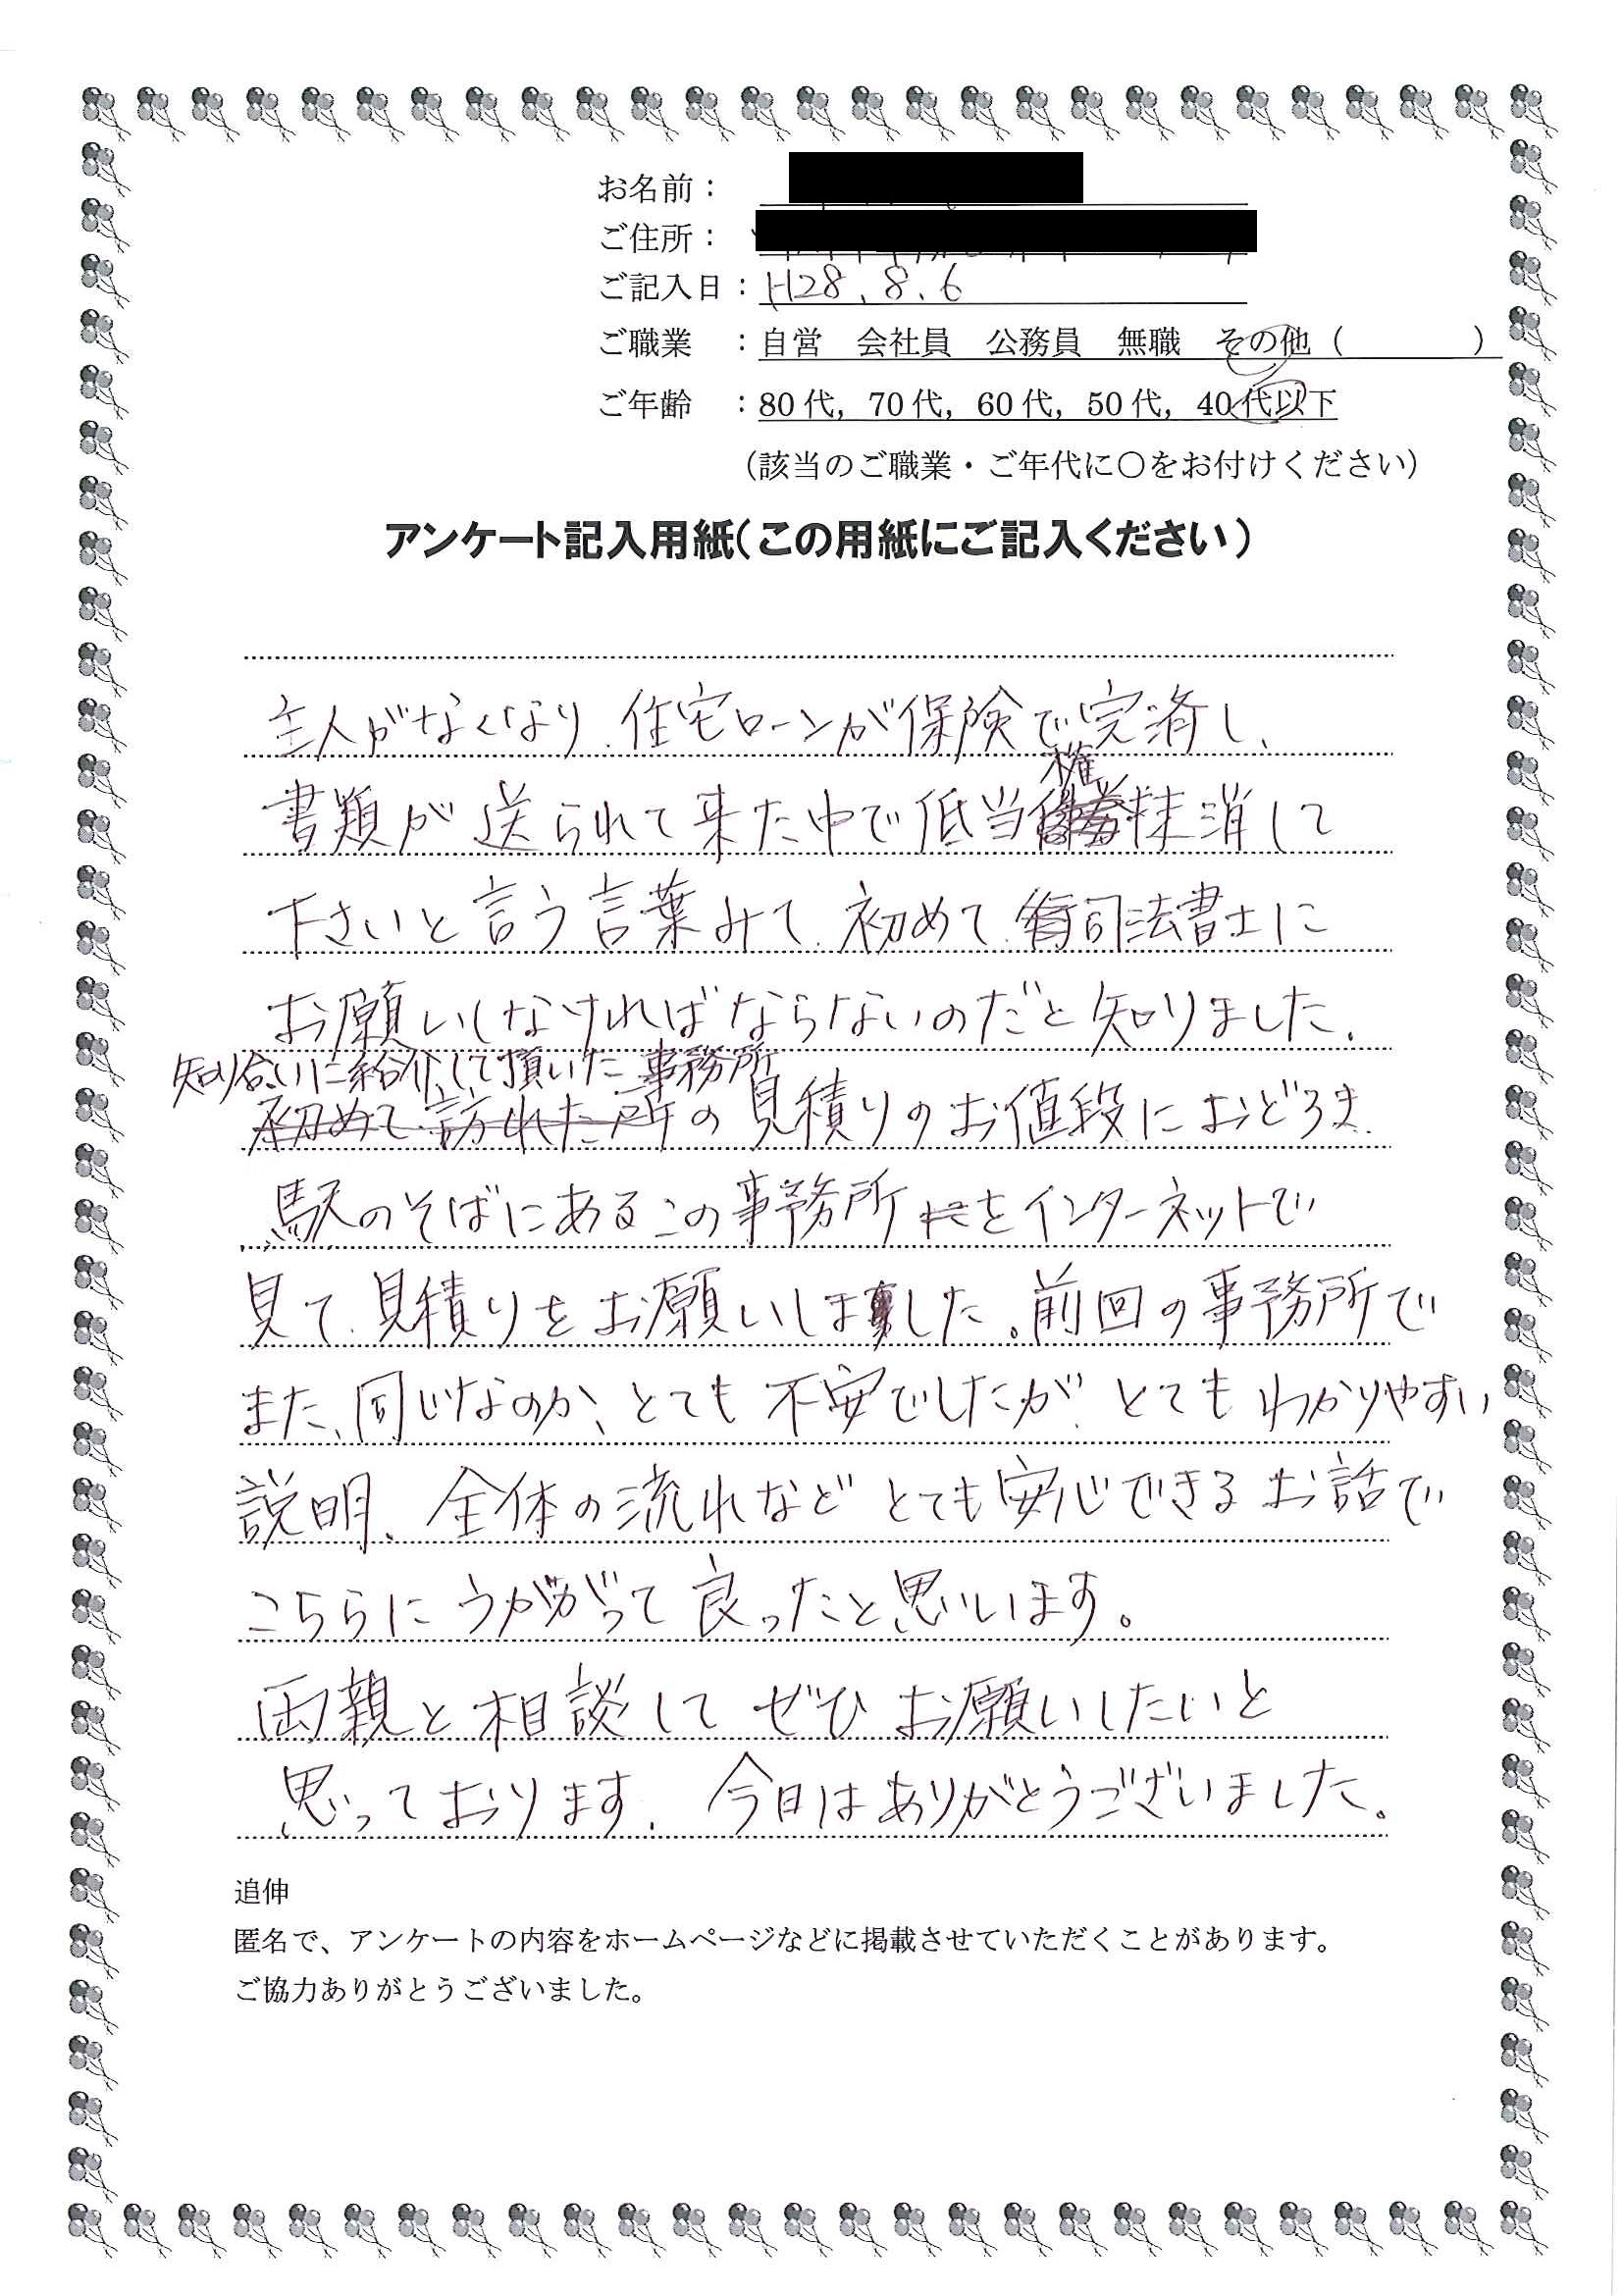 お名前：
ご住所：
ご記入日：H28.8.6
ご職業　：自営　会社員　公務員　無職　その他（　　　　）
ご年齢　：80代，70代，60代，50代，40代以下
（該当のご職業・ご年代に〇をお付けください）
アンケート記入用紙（この用紙にご記入ください）
主人がなくなり、住宅ローンが保険で完済し、
書類が送られて来た中で低当権抹消して
下さいと言う言葉みて、初めて、司法書士に
お願いしなければならないのだと知りました。
知り合いに紹介して頂いた事務所
初めて訪れた所の見積りのお値段におどろき
駅のそばにあるこの事務所をインターネットで
見て、見積りをお願いしました。前回の事務所で
また、同じなのか、とても不安でしたが、とてもわかりやすい
説明、全体の流れなどとても安心できるお話で
こちらにうががって良ったと思いします。
両親と相談してぜひお願いしたいと
思っております。今日はありがとうございました。
追伸
匿名で、アンケートの内容をホームページなどに掲載させていただくことがあります。
ご協力ありがとうございました。